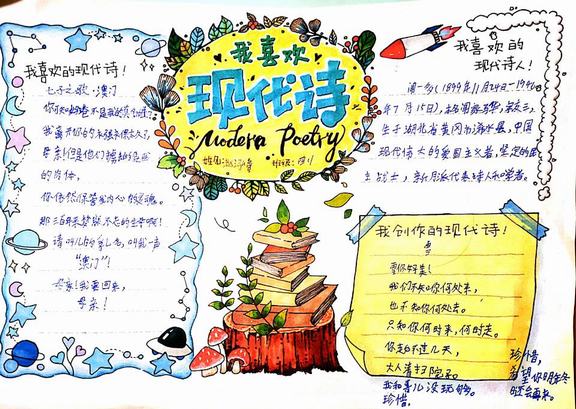 我喜欢
现代诗
Modern Poetry
我喜欢的现代诗!
七子之歌·澳门
你可知
我离开你的
母亲!但是他们掳去的是我
的肉体,
你依然保管我内心的灵魂。
那三百年来梦寐不忘的生母啊!
请叫儿的乳名,叫我一声
“澳门”!
母亲!我要回来,
母亲!
我喜欢的
现代诗人!
闻一多(1899年11月24日-1946
年7月15日),本名闻家骅,
生于湖北省黄冈市浠水县,中国
现代伟大的爱国主义者,坚定的民
主战士,新月派代表诗人和学者。
我创作的现代诗!
雪
雪你好美!
我们不知你何处来,
也不知你何处去。
只知你何时来,何时走。
你走的不过几天,
大人清扫院子。
我和喜儿没玩够。
珍惜,
珍惜,
希望你明年冬
时还会再来。